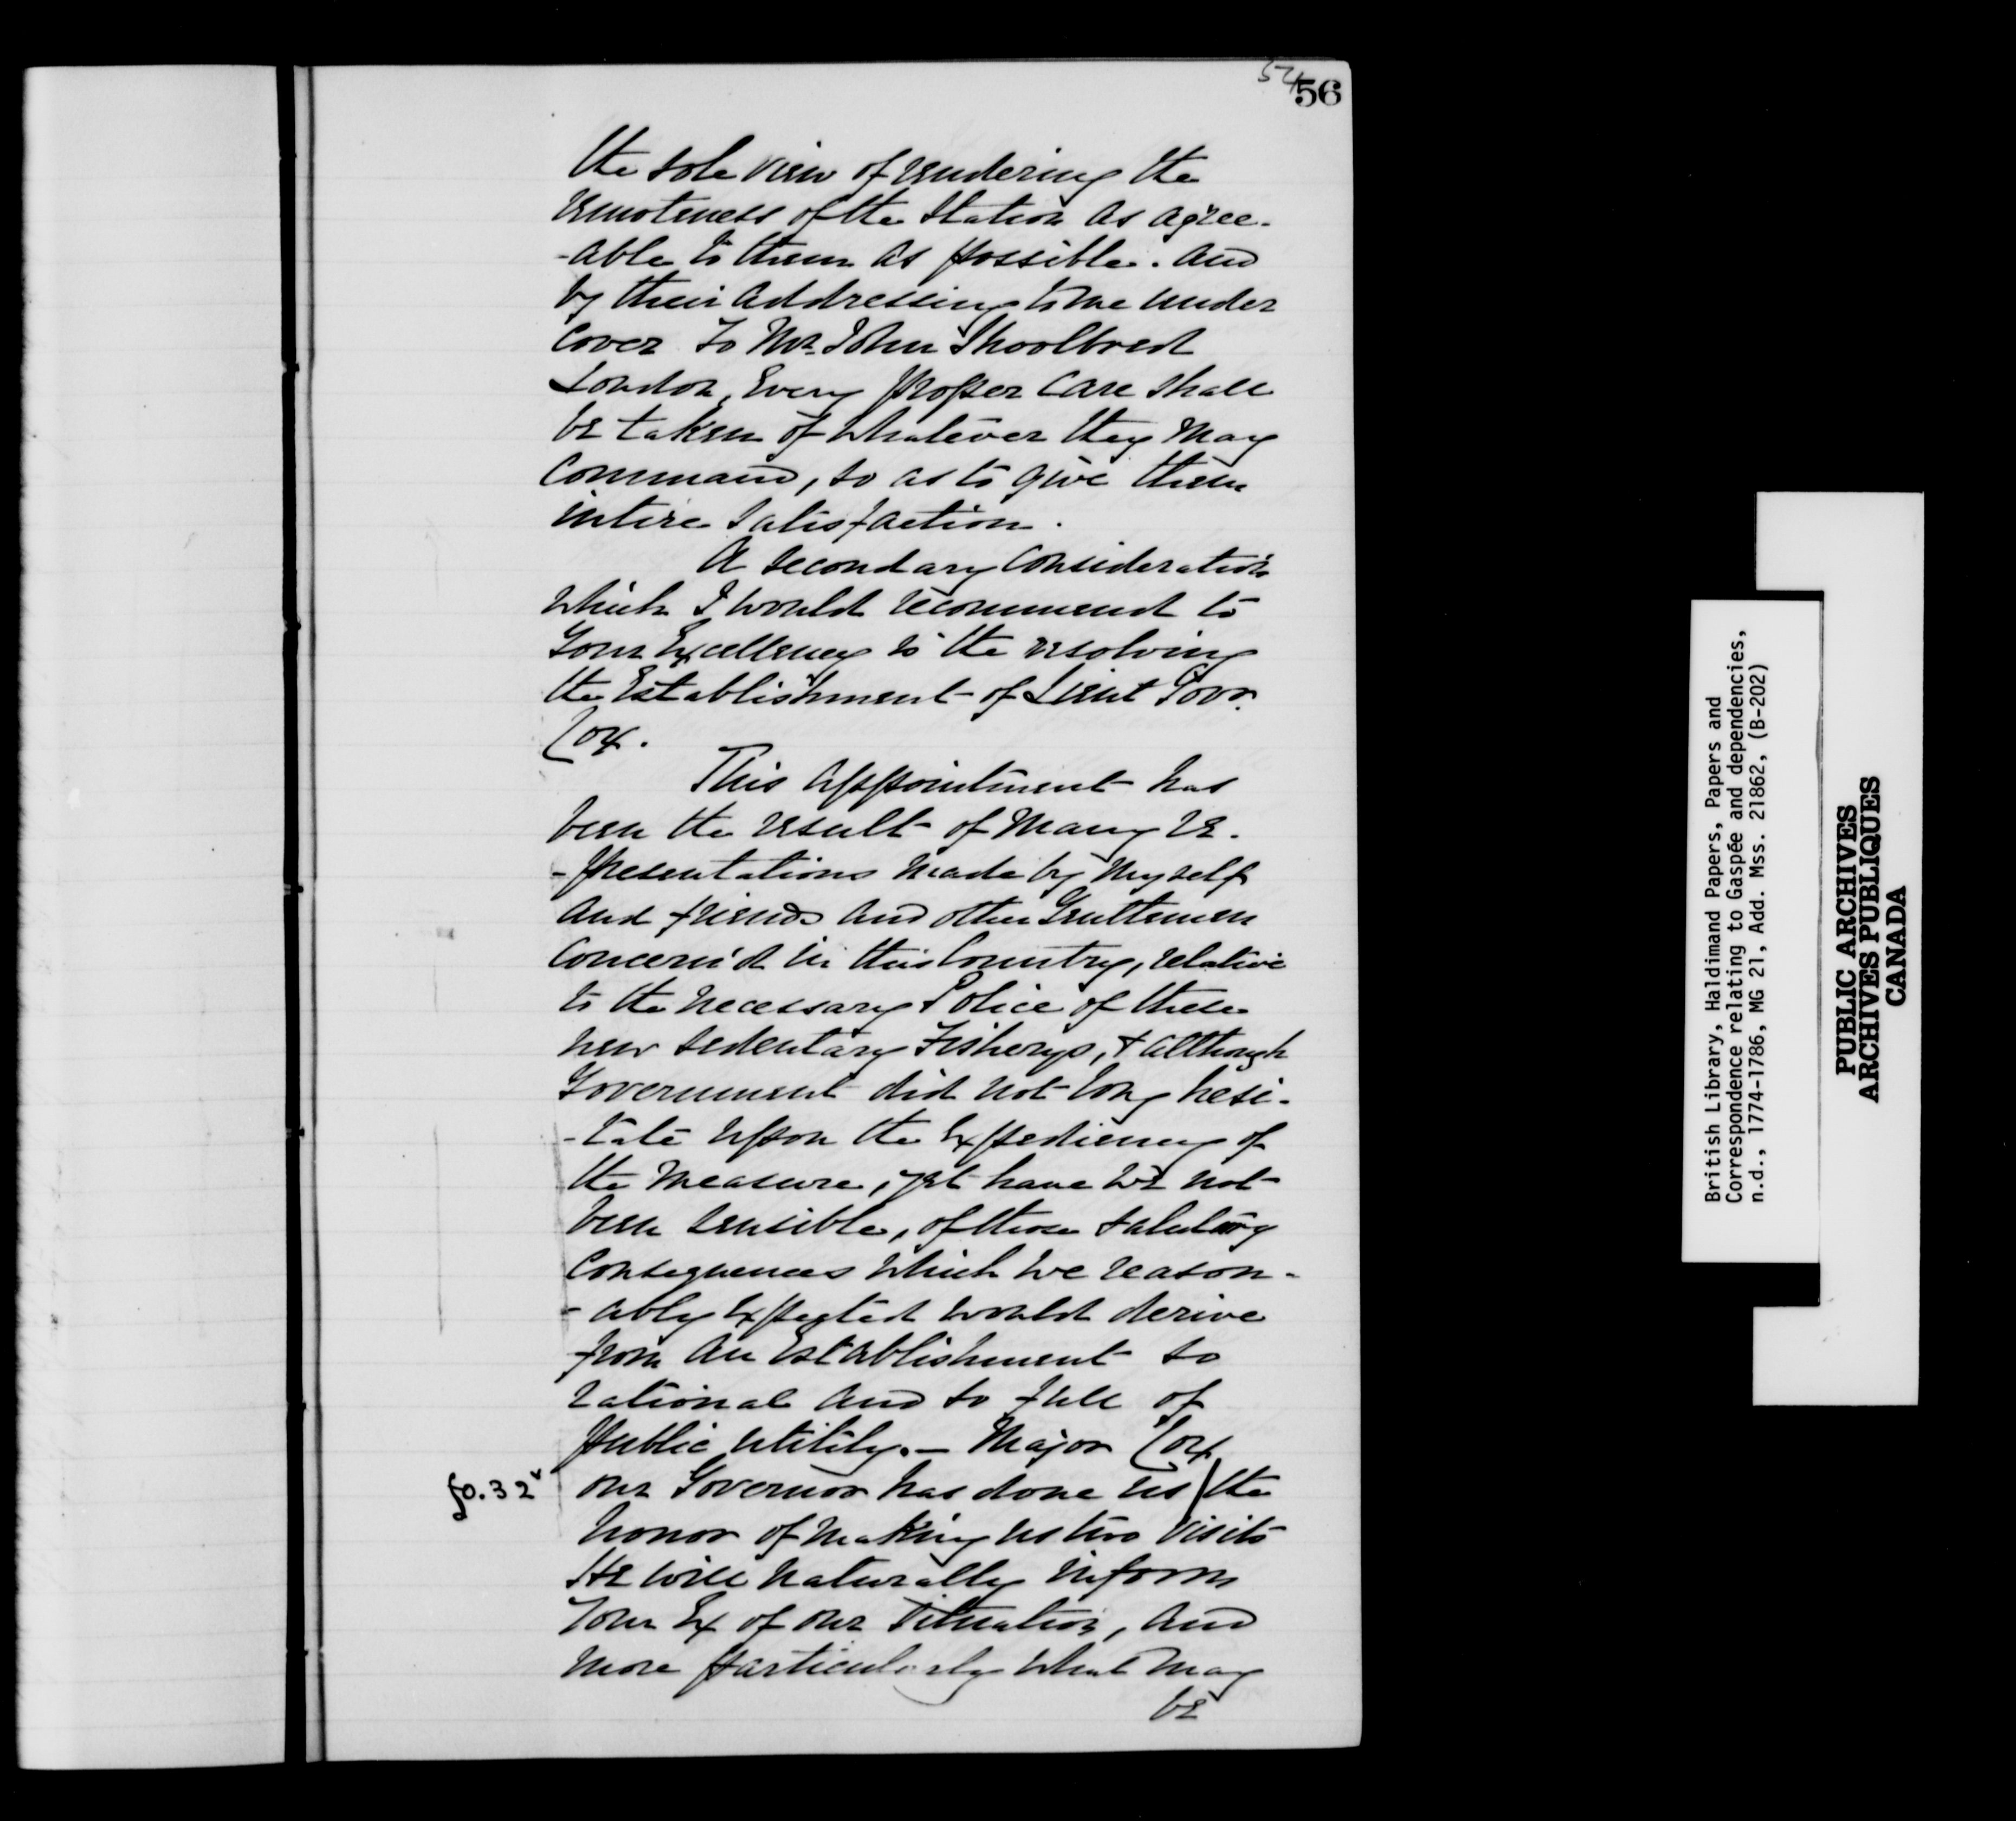 54
56
the sole view of rendering the
remoteness of the Station as agree-
-able to them as possible. And
by their addressing to me under
cover to Mr. John Shoolbred
London, Every proper care shall
be taken of whatever they may
command, so as to give them
intire satisfaction.
A secondary consideration
which I would recommend to
Your Excellency is the resolving
the Establishment of Lieut Govr.
Cox.
This appointment has
been the result of many re-
-presentations made by myself
and friends and other Gentlemen
concern'd in this Country, relative
to the necessary Police of these
new sedentary Fisherys, & although
Government did not long hesi-
-tate upon the Expediency of
the measure, yet have we not
been sensible, of those salutary
consequences which we reason-
-ably Expected would derive
from an Establishment so
rational and so full of
public utility. — Major Cox
fo. 32v our Governor has done us / the
honor of making us two visits
He will naturally inform
Your Ex of our Situation, and
more particularly what may
be
British Library, Haldimand Papers, Papers and
Correspondence relating to Gaspée and dependencies,
n.d., 1774-1786, MG 21, Add. Mss. 21862, (B-202)
PUBLIC ARCHIVES
ARCHIVES PUBLIQUES
CANADA